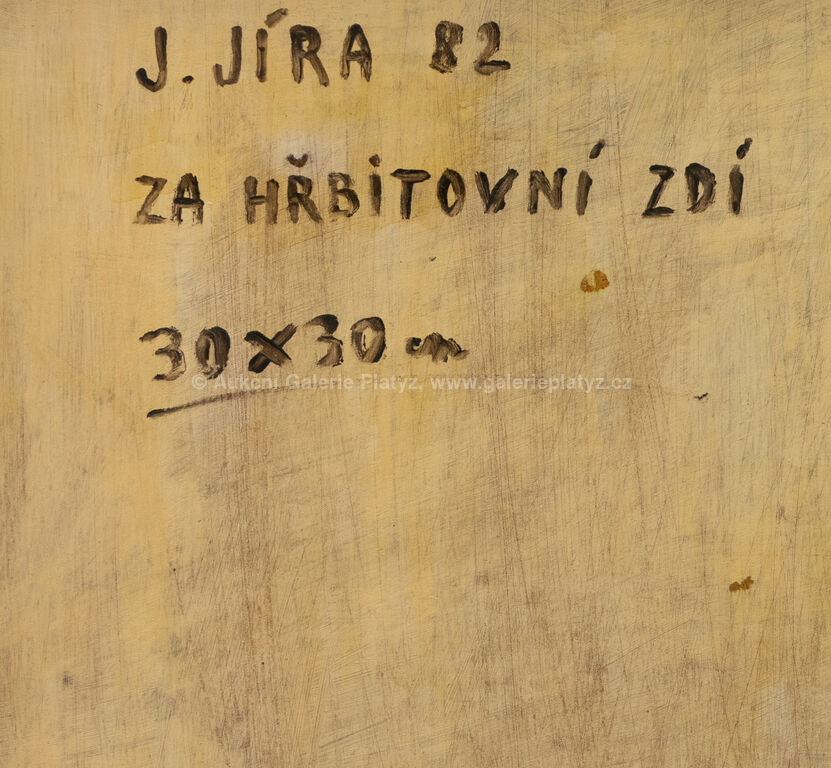 J. JÍRA 82
ZA HŘBITOVNÍ ZDÍ
30×30 cm
© Aukční Galerie Platýz, www.galerieplatyz.cz